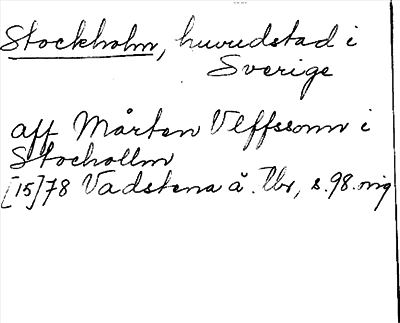 Stockholm, huvudstad i
Sverige
aff Mårten Vlffssonn i
Stochollm
[15]78 Vadstena å. Tbr, s. 98. orig